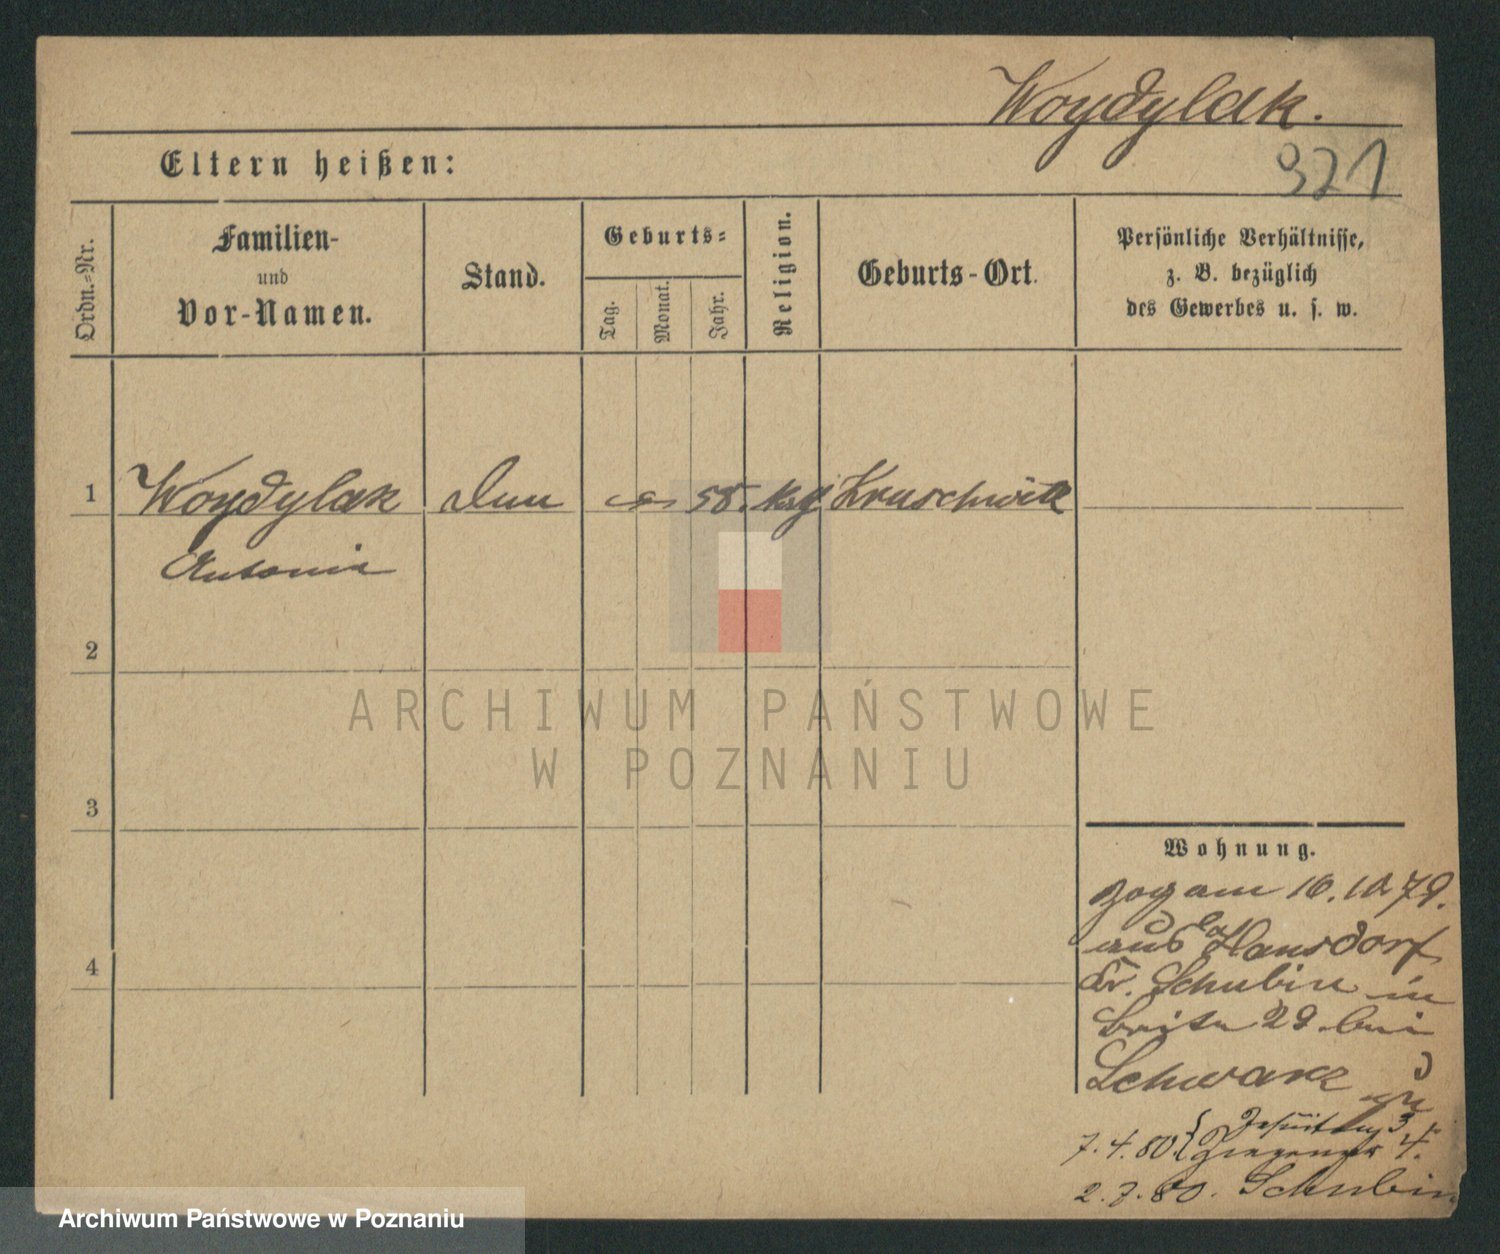 Woydylak.
Eltern heißen:
321
Ordn.-Nr.
Familien-
und
Vor-Namen.
Stand.
Geburts-
Tag.
Monat.
Jahr.
Religion.
Geburts-Ort.
Persönliche Verhältnisse,
z. B. bezüglich
des Gewerbes u. s. w.
1 Woydylak 58. Kruschwitz
Antonie
2
3
4
ARCHIWUM PAŃSTWOWE
W POZNANIU
Wohnung.
zog am 16. 10. 79.
aus Hansdorf
Kr. Schubin in
Breite 29. bei
Schwarz
7. 4. 80. Jesuiten 3
4.
2. 7. 80. Schubin
Archiwum Państwowe w Poznaniu